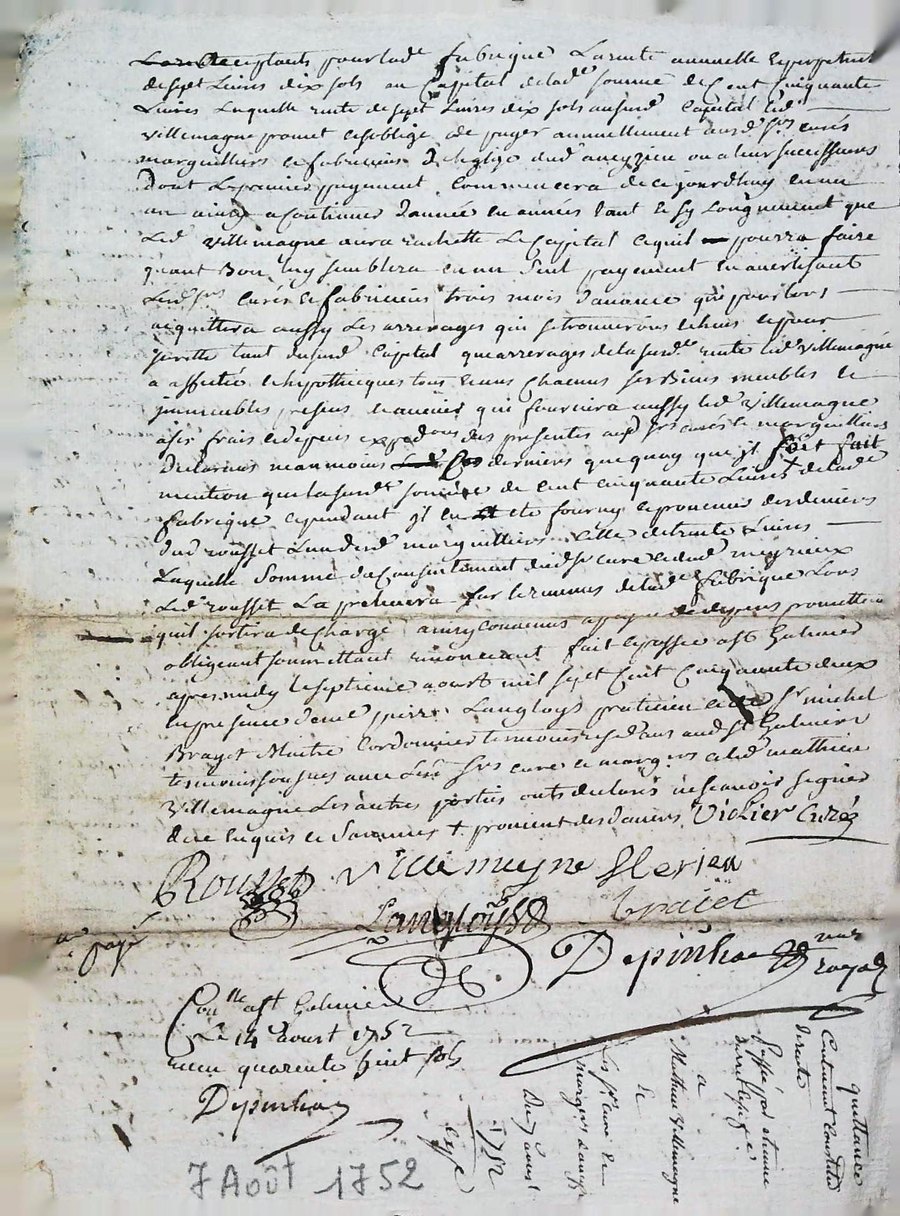 acceptants pour lad fabrique La rente annuelle et perpetuelle
de sept Livres dix sols au Capital de lade somme de Cent Cinquante
Livres Laquelle rente de sept Livres dix sols au surd Capital led
villemagne promet et s'oblige de payer annuellement ausd srs curés
marguilliers et fabriciens de leglize dud aveyzieu ou a leur successeurs
dont Le premier payement Commencera de ce jourdhuy en un
an ainsy a Continuer d'année en années tant et sy Longuement que
Led villemagne aura rachetté Le Capital ce quil pourra faire
quant Bon luy semblera en un seul payement en avertissant
Lesd srs curés et fabriciens trois mois d'avance que pour lors
acquittera aussy Les arrerages qui se trouveront echeus et pour
sureté tant du surd Capital que arrerages de la surde rente led villemagne
a affecté et hypothecqués tous et uns Chacuns ses Biens meubles et
immeubles presens et avenir qui fournira aussy led villemagne
a ses frais et depens expedons des presentes ausd srs curés et marguilliers
declarans neanmoins Ces derniers que quoy que jl soit fait
mention que la surde somme de cent cinquante Livres de lade
fabrique cependant jl en ete fourny et provenu des deniers
dud rousset L'un desd marguilliers celle de trente Livres
Laquelle somme du Consentement dud sr curé et dud meyrieux
Led rousset La prelevera sur les revenus de lade fabrique Lors
quil sortira de charge ainsy convenus a peyne de depens promettant
obligeant soumettant renonceant fait et passé a st Galmier
apres midy le septieme aoust mil sept Cent Cinquante deux
en presence de me pierre Langloys praticien et de sr michel
Brayet Maitre Cordonnier temoins residans aud st Galmier
temoins soussignés avec Lesd srs curé et margers et led mathieu
villemagne Les autres parties onts declarés ne scavoir signer
de ce enquis et sommés + provient des deniers Violier Curé
Rousset Villemagne Herien
Langloys Braiet
a payé
Depinhac nre royal
Conlle a st Galmier
Le 14 aoust 1752
receu quarente huit sols
Depinhac
quittance
Contenant Constitution
de rente
Passée par etienne
a
Mathieu Villemagne
et
Les srs curé et
margers d'aveyz
Du 7 aoust
1752
Expe
7 Août 1752